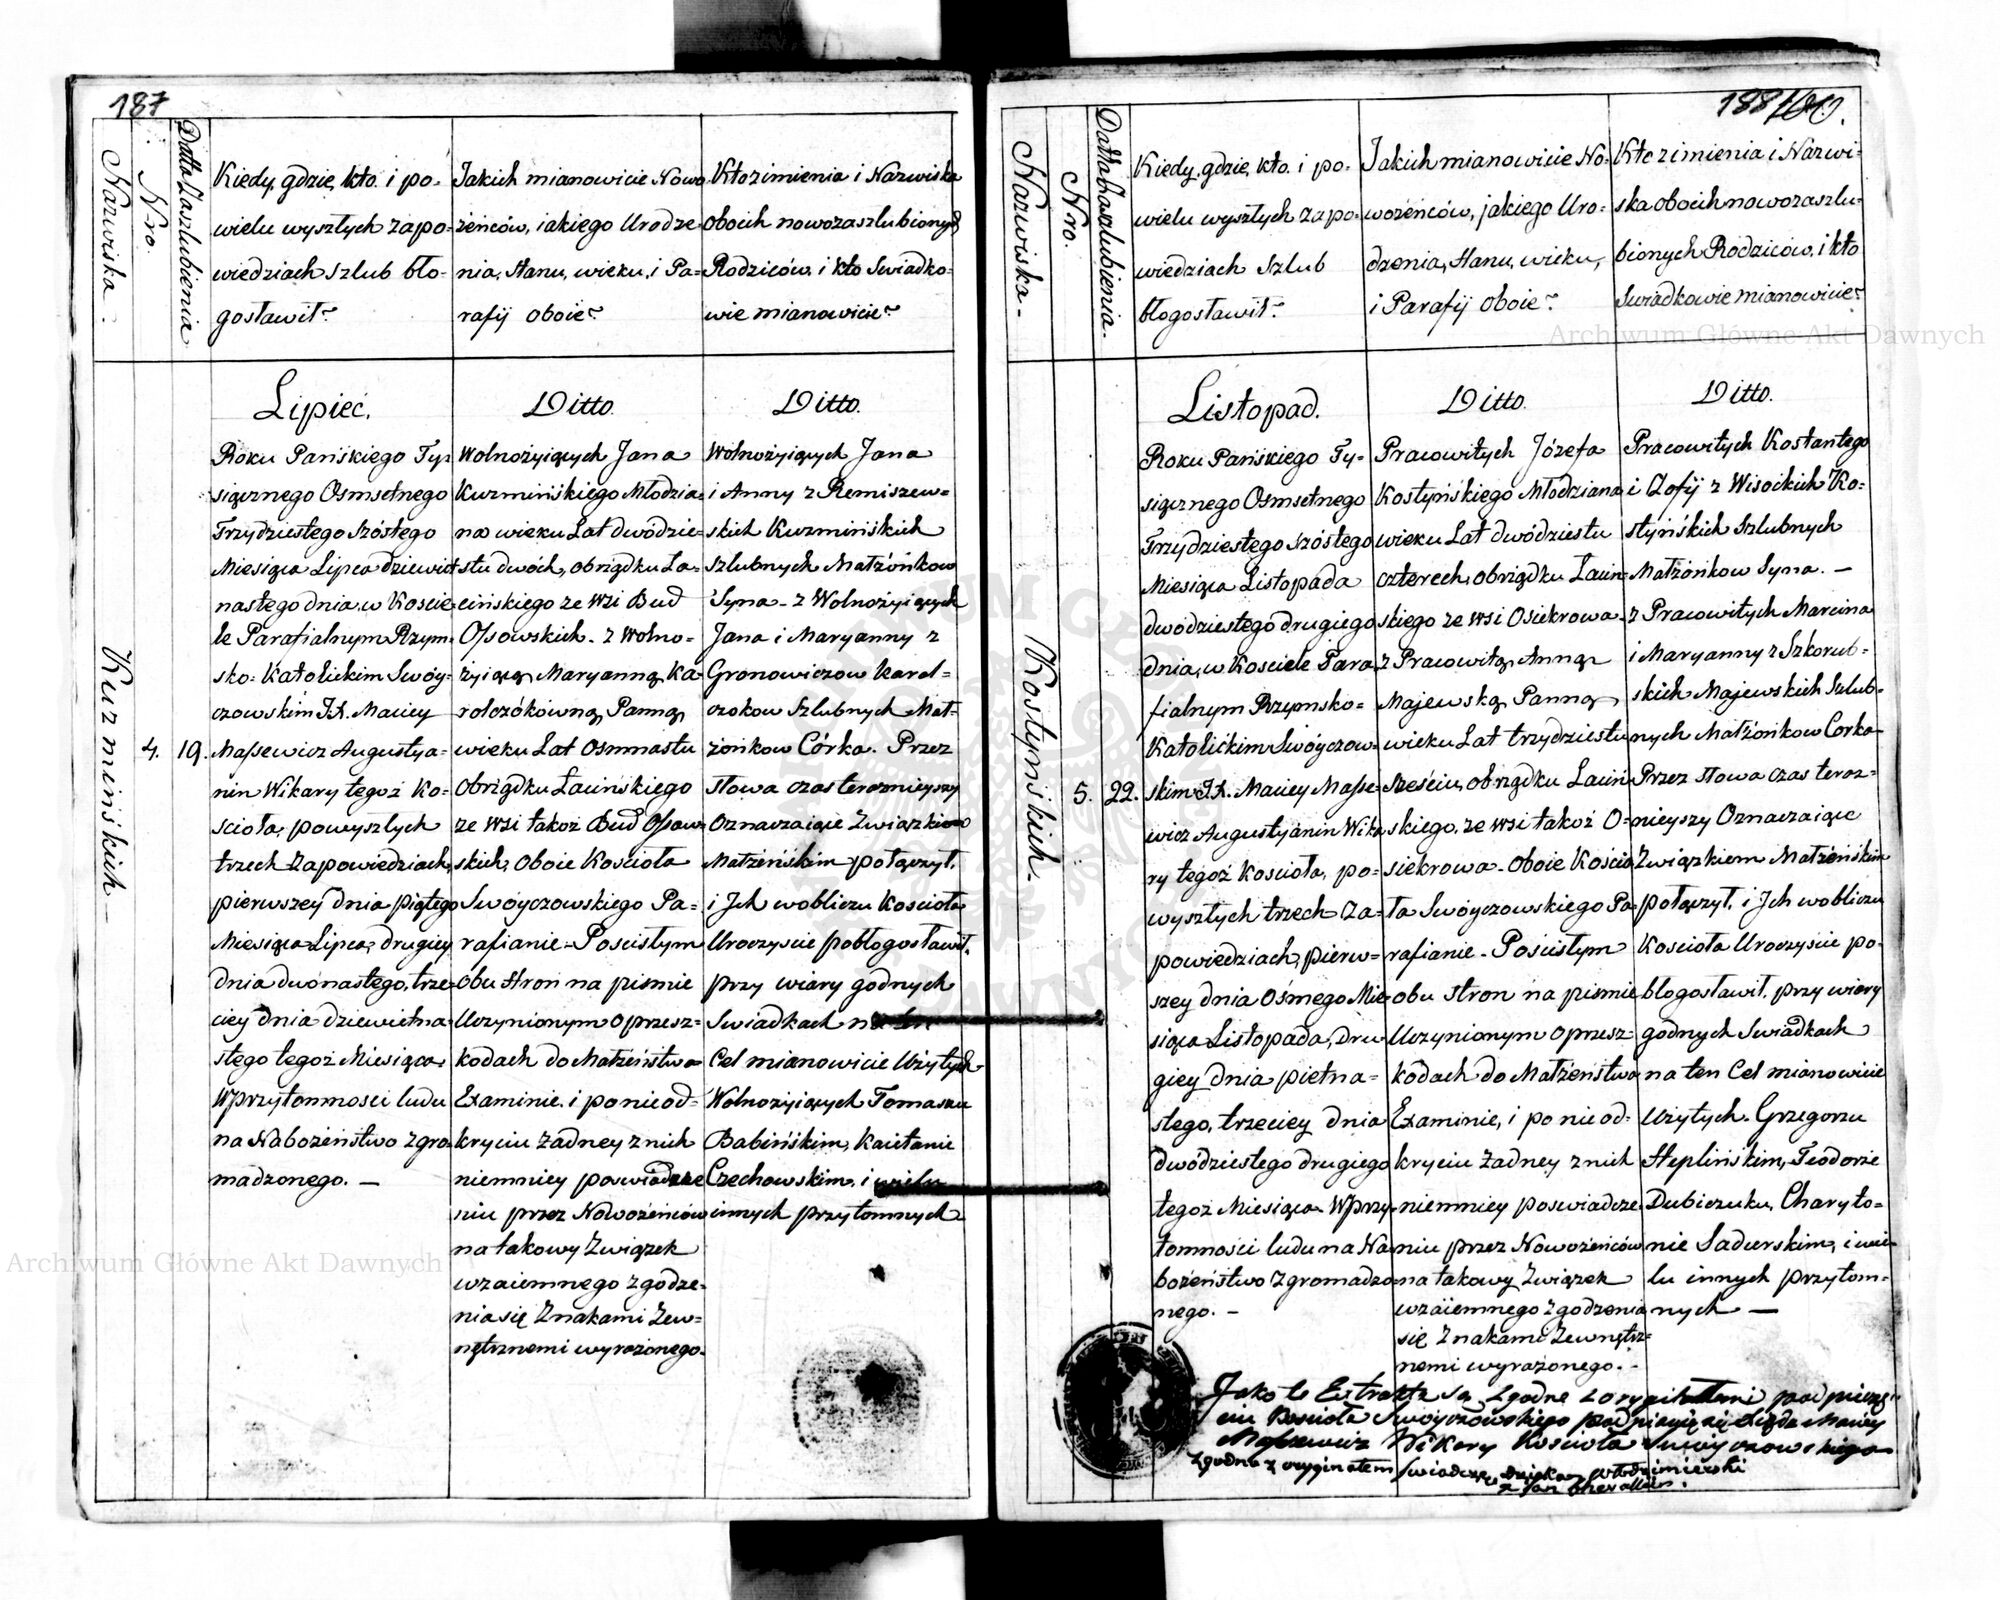 187
Nazwiska.
Nro.
Datta Zaszlubienia
Kiedy, gdzie, kto. i po-
wielu wyszłych zapo-
wiedziach szlub bło-
gosławił?
Jakich mianowicie Nowo
żeńców, iakiego Urodze
nia, stanu, wieku, i Pa-
rafij oboie?
Kto z imienia i Nazwiska
oboich nowozaszlubionych
Rodziców, i kto Swiadko-
wie mianowicie?
Kurmińskich —
4.
19.
Lipiec.
Roku Pańskiego Ty-
siącznego Osmsetnego
Trzydziestego szóstego
Miesiąca Lipca dziewiet
nastego dnia, w Koscie
le Parafialnym Rzym
sko= Katolickim Swóy-
czowskim JX. Maciey
Massewicz Augustya-
nin Wikary tegoż Ko-
scioła, powyszłych
trzech Zapowiedziach,
pierwszey dnia piątego
Miesiąca Lipca, drugiey
dnia dwonastego, trze-
ciey dnia dziewietna-
stego tegoż Miesiąca
W przytomnosci ludu
na Nabożeństwo zgro-
madzonego. —
Ditto.
Wolnożyiących Jana
Kuzmińskiego Młodzia-
na wieku Lat dwódzie-
stu dwóch, obrządku La-
cińskiego ze wsi Bud
Ossowskich - z Wolno-
żyiącą Maryanną Ka-
rolczókówną Panną
wieku Lat Osmnastu
Obrządku Łacińskiego
ze wsi takoż Bud Ossow
skich, Oboie Koscioła
Swoyczowskiego Pa-
rafianie - Poscisłym
obu stron na pismie
Uczynionym o przesz-
kodach do Małżeństwa
Examinie. i po nieod-
kryciu żadney z nich
niemniey poswiadcze
niu przez Nowożeńców
na takowy Związek
wzaiemnego zgodze-
nia się Znakami Zew-
nętrznemi wyrażonego.
Ditto.
Wolnożyiących Jana
i Anny z Remiszew-
skich Kuzmińskich
szlubnych Małżónkow
Syna - z Wolnożyiących
Jana i Maryanny z
Gronowiczow Karol-
czokow Szlubnych Mał-
żónkow Córka. Przez
słowa czas teraznieyszy
Oznaczaiące Związkiem
Małżeńskim połączył.
i Ich wobliczu Koscioła
Uroczyscie pobłogosławił.
przy wiary godnych
Swiadkach na ten
Cel mianowicie Użytych
Wolnożyiących Tomaszu
Babińskim, Kaietanie
Czechowskim, i wielu
innych przytomnych
188
Nazwiska.
Nro.
Datta Zaszlubienia.
Kiedy, gdzie, kto. i po-
wielu wyszłych zapo-
wiedziach szlub
błogosławił?
Jakich mianowicie No-
wożeńców, jakiego Uro-
dzenia, stanu, wieku,
i Parafij oboie?
Kto z imienia i Nazwi-
ska oboich nowozaszlu-
bionych Rodziców, i kto
Swiadkowie mianowicie?
Kostyńskich —
5.
22.
Listopad.
Roku Pańskiego Ty-
siącznego Osmsetnego
Trzydziestego szóstego
Miesiąca Listopada
dwódziestego drugiego
dnia, w Kosciele Para
fialnym Rzymsko-
Katolickim Swóyczow-
skim JX. Maciey Masse-
wicz Augustyanin Wika
ry tegoż Koscioła, po-
wyszłych trzech Za-
powiedziach, pierw-
szey dnia Osmego Mie-
siąca Listopada, dru-
giey dnia pietna-
stego, trzeciey dnia
dwódziestego drugiego
tegoż Miesiąca W przy-
tomnosci ludu na Na-
bożeństwo zgromadzo-
nego. —
Ditto.
Pracowitych Józefa
Kostyńskiego Młodziana
wieku Lat dwódziestu
czterech, obrządku Lacin-
skiego ze wsi Osiekrowa
z Pracowitą Anną
Majewską Panną
wieku Lat trzydziestu
sześciu, obrządku Laciń
skiego, ze wsi takoż O-
siekrowa - oboie Koscio
ła Swóyczowskiego Pa-
rafianie - Poscisłym
obu stron na pismie
Uczynionym o przesz-
kodach do Małżeństwa
Examinie, i po nie od-
kryciu żadney z nich
niemniey poswiadcze-
niu przez Nowożeńców
na takowy Związek
wzaiemnego zgodzenia
się Znakami Zewnętrz-
nemi wyrażonego. -
Ditto.
Pracowitych Kostantego
i Zofij z Wisockich Ko-
styńskich Szlubnych
Małżónkow Syna. —
z Pracowitych Marcina
i Maryanny z Szkorub-
skich Majewskich Szlub-
nych Małżónkow Corka
Przez słowa czas teraz-
nieyszy Oznaczaiące
Związkiem Małżeńskim
połączył. i Ich wobliczu
Koscioła Uroczyscie po-
błogosławił. przy wiary
godnych Swiadkach
na ten Cel mianowicie
Użytych. Grzegorzu
Steplińskim, Teodorze
Dubiczuku, Charyto-
nie Sadurskim, i wie-
lu innych przytom-
nych —
Jako te Extrakta są zgodne z oryginałami pod pieczę-
cią Koscioła Swoyczowskiego podpisuię się Xiądz Maciey
Massewicz Wikary Koscioła Swoyczowskiego
Zgodno z oryginałem swiadczę, Dziekan Włodzimierski
Archiwum Główne Akt Dawnych
Archiwum Główne Akt Dawnych